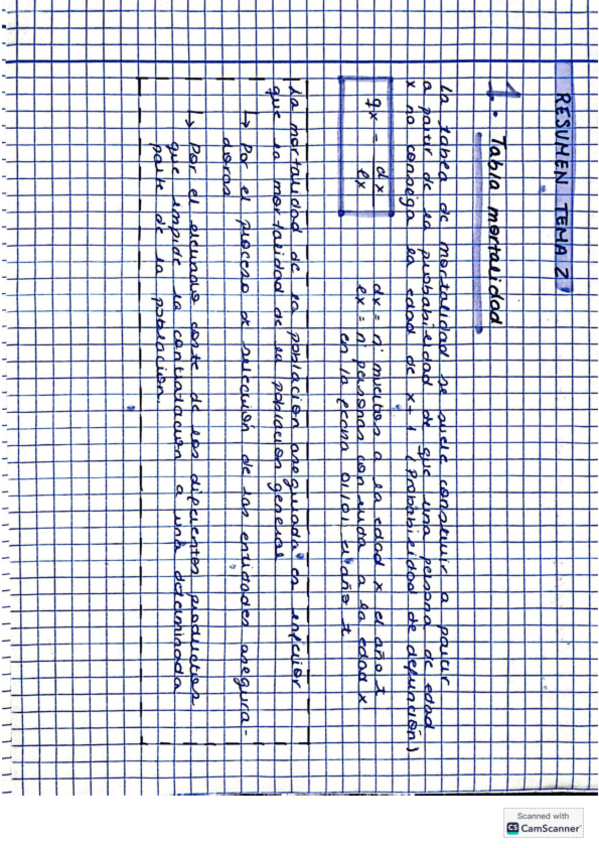 RESUMEN TEMA 2
1. Tabla mortalidad
La tabla de mortalidad se suele construir a partir
a partir de la probabilidad de que una persona de edad
x no consiga la edad de x+1 (Probabilidad de defunción)
qx = dx / lx
dx = nº muertos a la edad x el año t
lx = nº personas con vida a la edad x
en la fecha 01/01 el año t
La mortalidad de la población asegurada es inferior
que la mortalidad de la población general
↳ Por el proceso de selección de las entidades asegura-
doras
↳ Por el elevado coste de los diferentes productos
que impide la contratación a una determinada
parte de la población.
Scanned with
CS CamScanner